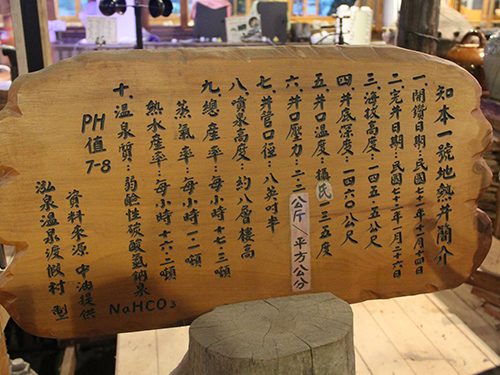 知本一號地熱井簡介
一開鑽日期：民國七十年十月十四日
二完井日期：民國七十一年一月二十六日
三海拔高度：一四五·五公尺
四井底深度：一四六〇公尺
五井口溫度：攝氏 一三五度
六井口壓力：二·二公斤／平方公分
七井管口徑：八英吋半
八噴泉高度：約八層樓高
九總產率：每小時 一七·三噸
蒸氣率：每小時 一·一噸
熱水產率：每小時 十六·二噸
十溫泉質：弱鹼性碳酸氫鈉泉
NaHCO3
PH值
7-8
資料來源 中油提供
泓泉溫泉渡假村 製